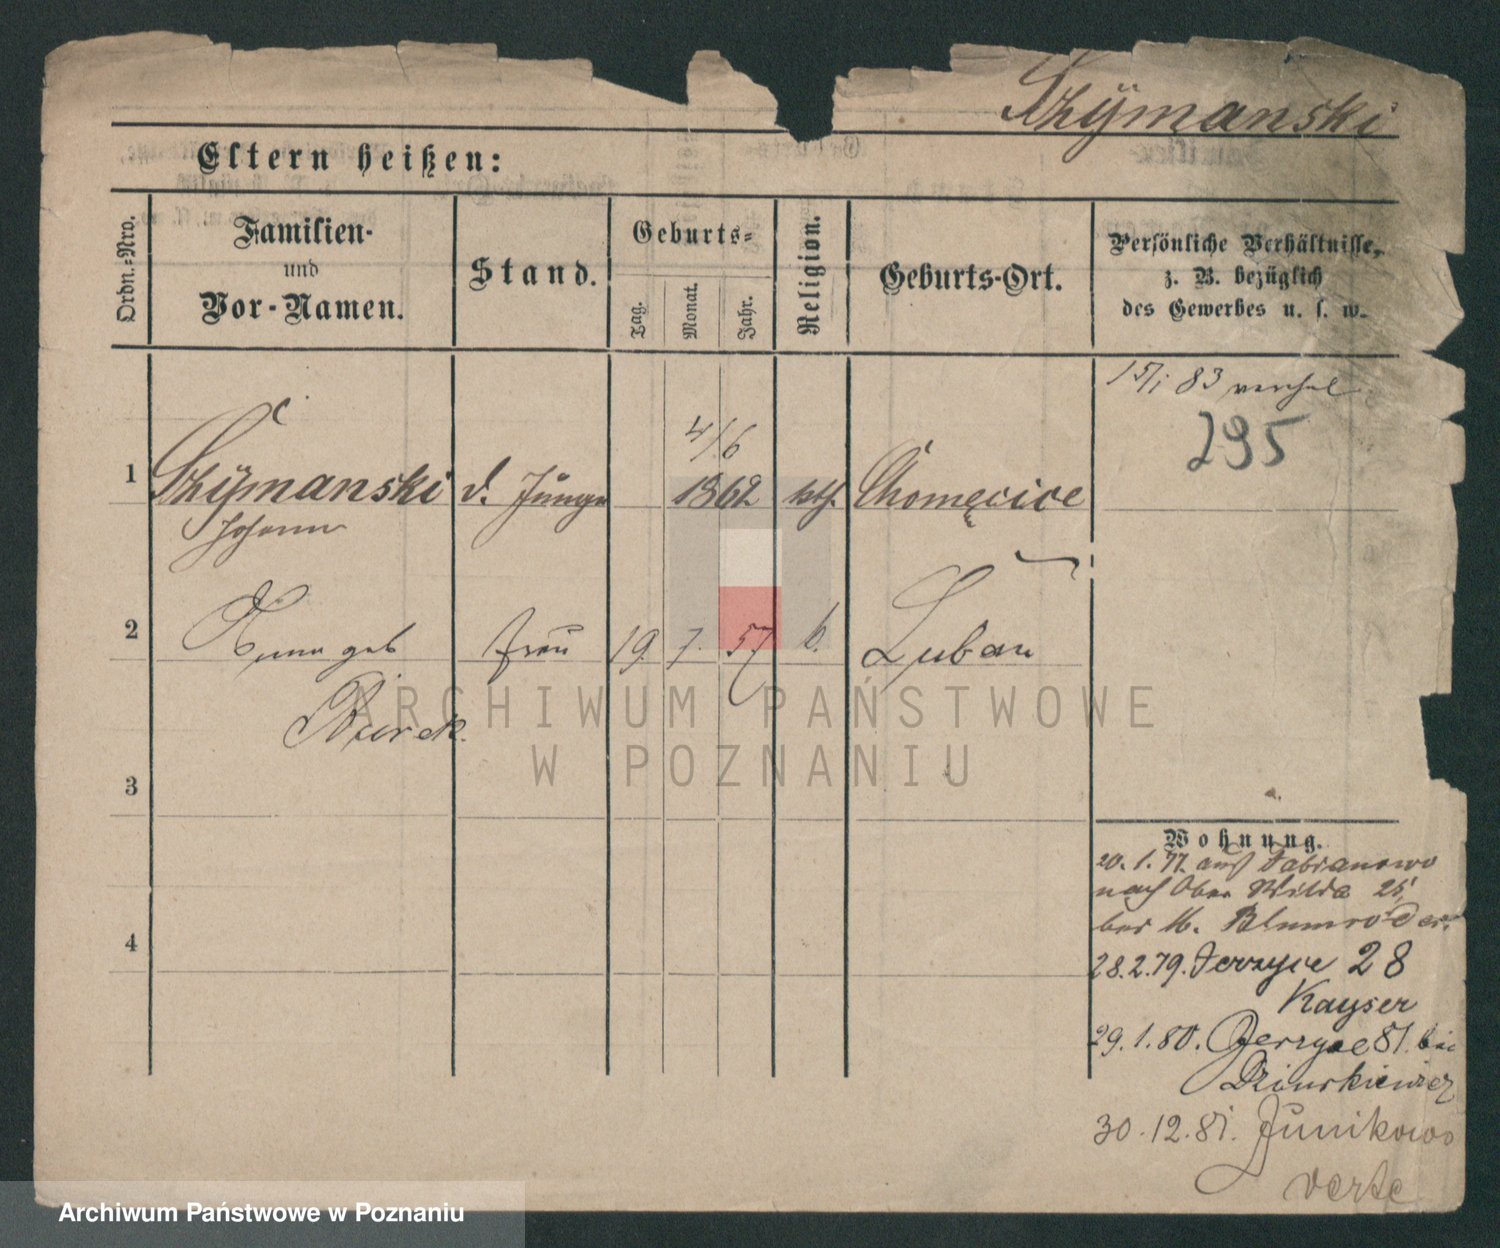 Szÿmanski
Eltern heißen:
Ordn.=Nro.
Familien-
und
Vor-Namen.
Stand.
Geburts=
Tag.
Monat.
Jahr.
Religion.
Geburts-Ort.
Persönliche Verhältnisse,
z. B. bezüglich
des Gewerbes u. s. w.
15/1 83
295
4/6
1 Szÿmanski d. Junge 1862 kth. Chomęcice
Johann
2 Anna geb Frau 19. 7. 57 k. Luban
Burek.
ARCHIWUM PAŃSTWOWE
W POZNANIU
3
4
Wohnung.
20. 1. 77. aus Fabianowo
nach Ober Wilda 25,
bei M. Blumroder.
28.2.79. Jerzyce 28
Kayser
29.1.80. Jerzyce 81. bei
30.12.81. Junikowo
verte
Archiwum Państwowe w Poznaniu